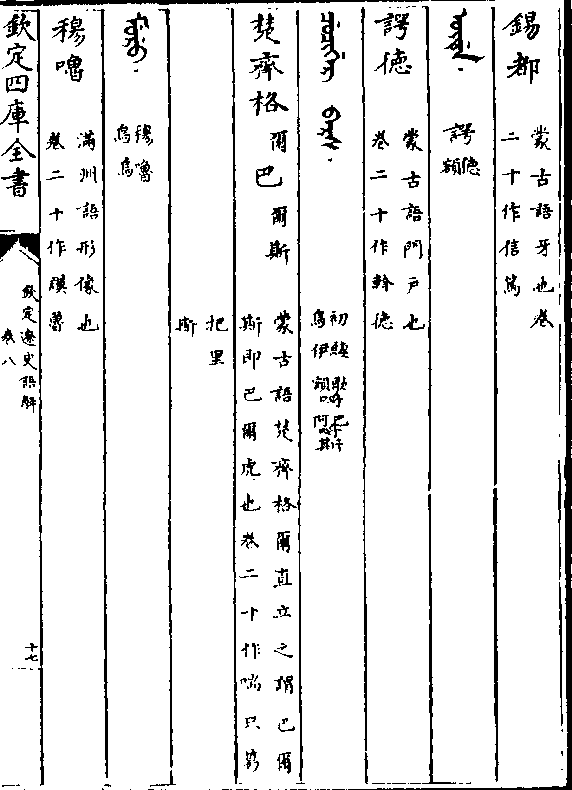 錫都
蒙古語牙也卷
二十作信篤
諤德
諤德
額
蒙古語門戶也
卷二十作斡德
楚齊格爾巴爾斯
初 齊 歌呼 巴 斯
烏 伊 額 阿
蒙古語楚齊格爾直立之謂巴爾
斯即巴爾虎也卷二十作啜只篤
把里
斯
穆嚕
穆嚕
烏烏
滿洲語形像也
卷二十作謨魯
欽定四庫全書
欽定遼史語解
卷八
十七